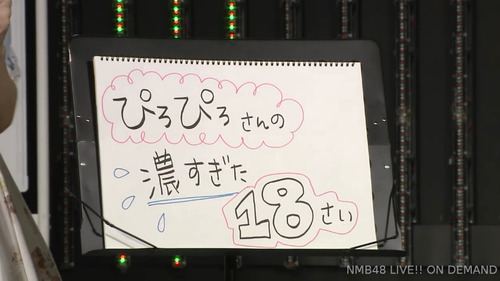 ぴろぴろさんの
濃すぎた
18さい
NMB48 LIVE!! ON DEMAND